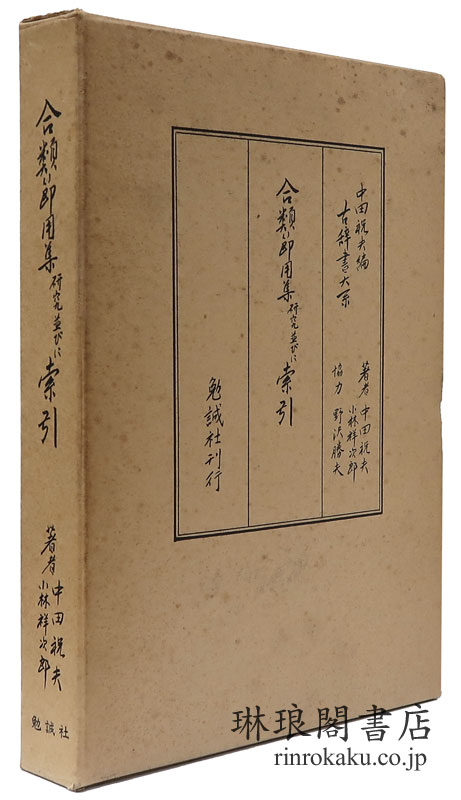 合類節用集研究並びに索引
著者 中田祝夫
小林祥次郎
勉誠社
中田祝夫編
古辞書大系
著者 中田祝夫
小林祥次郎
協力 野沢勝夫
合類節用集研究並びに索引
勉誠社刊行
琳琅閣書店
rinrokaku.co.jp